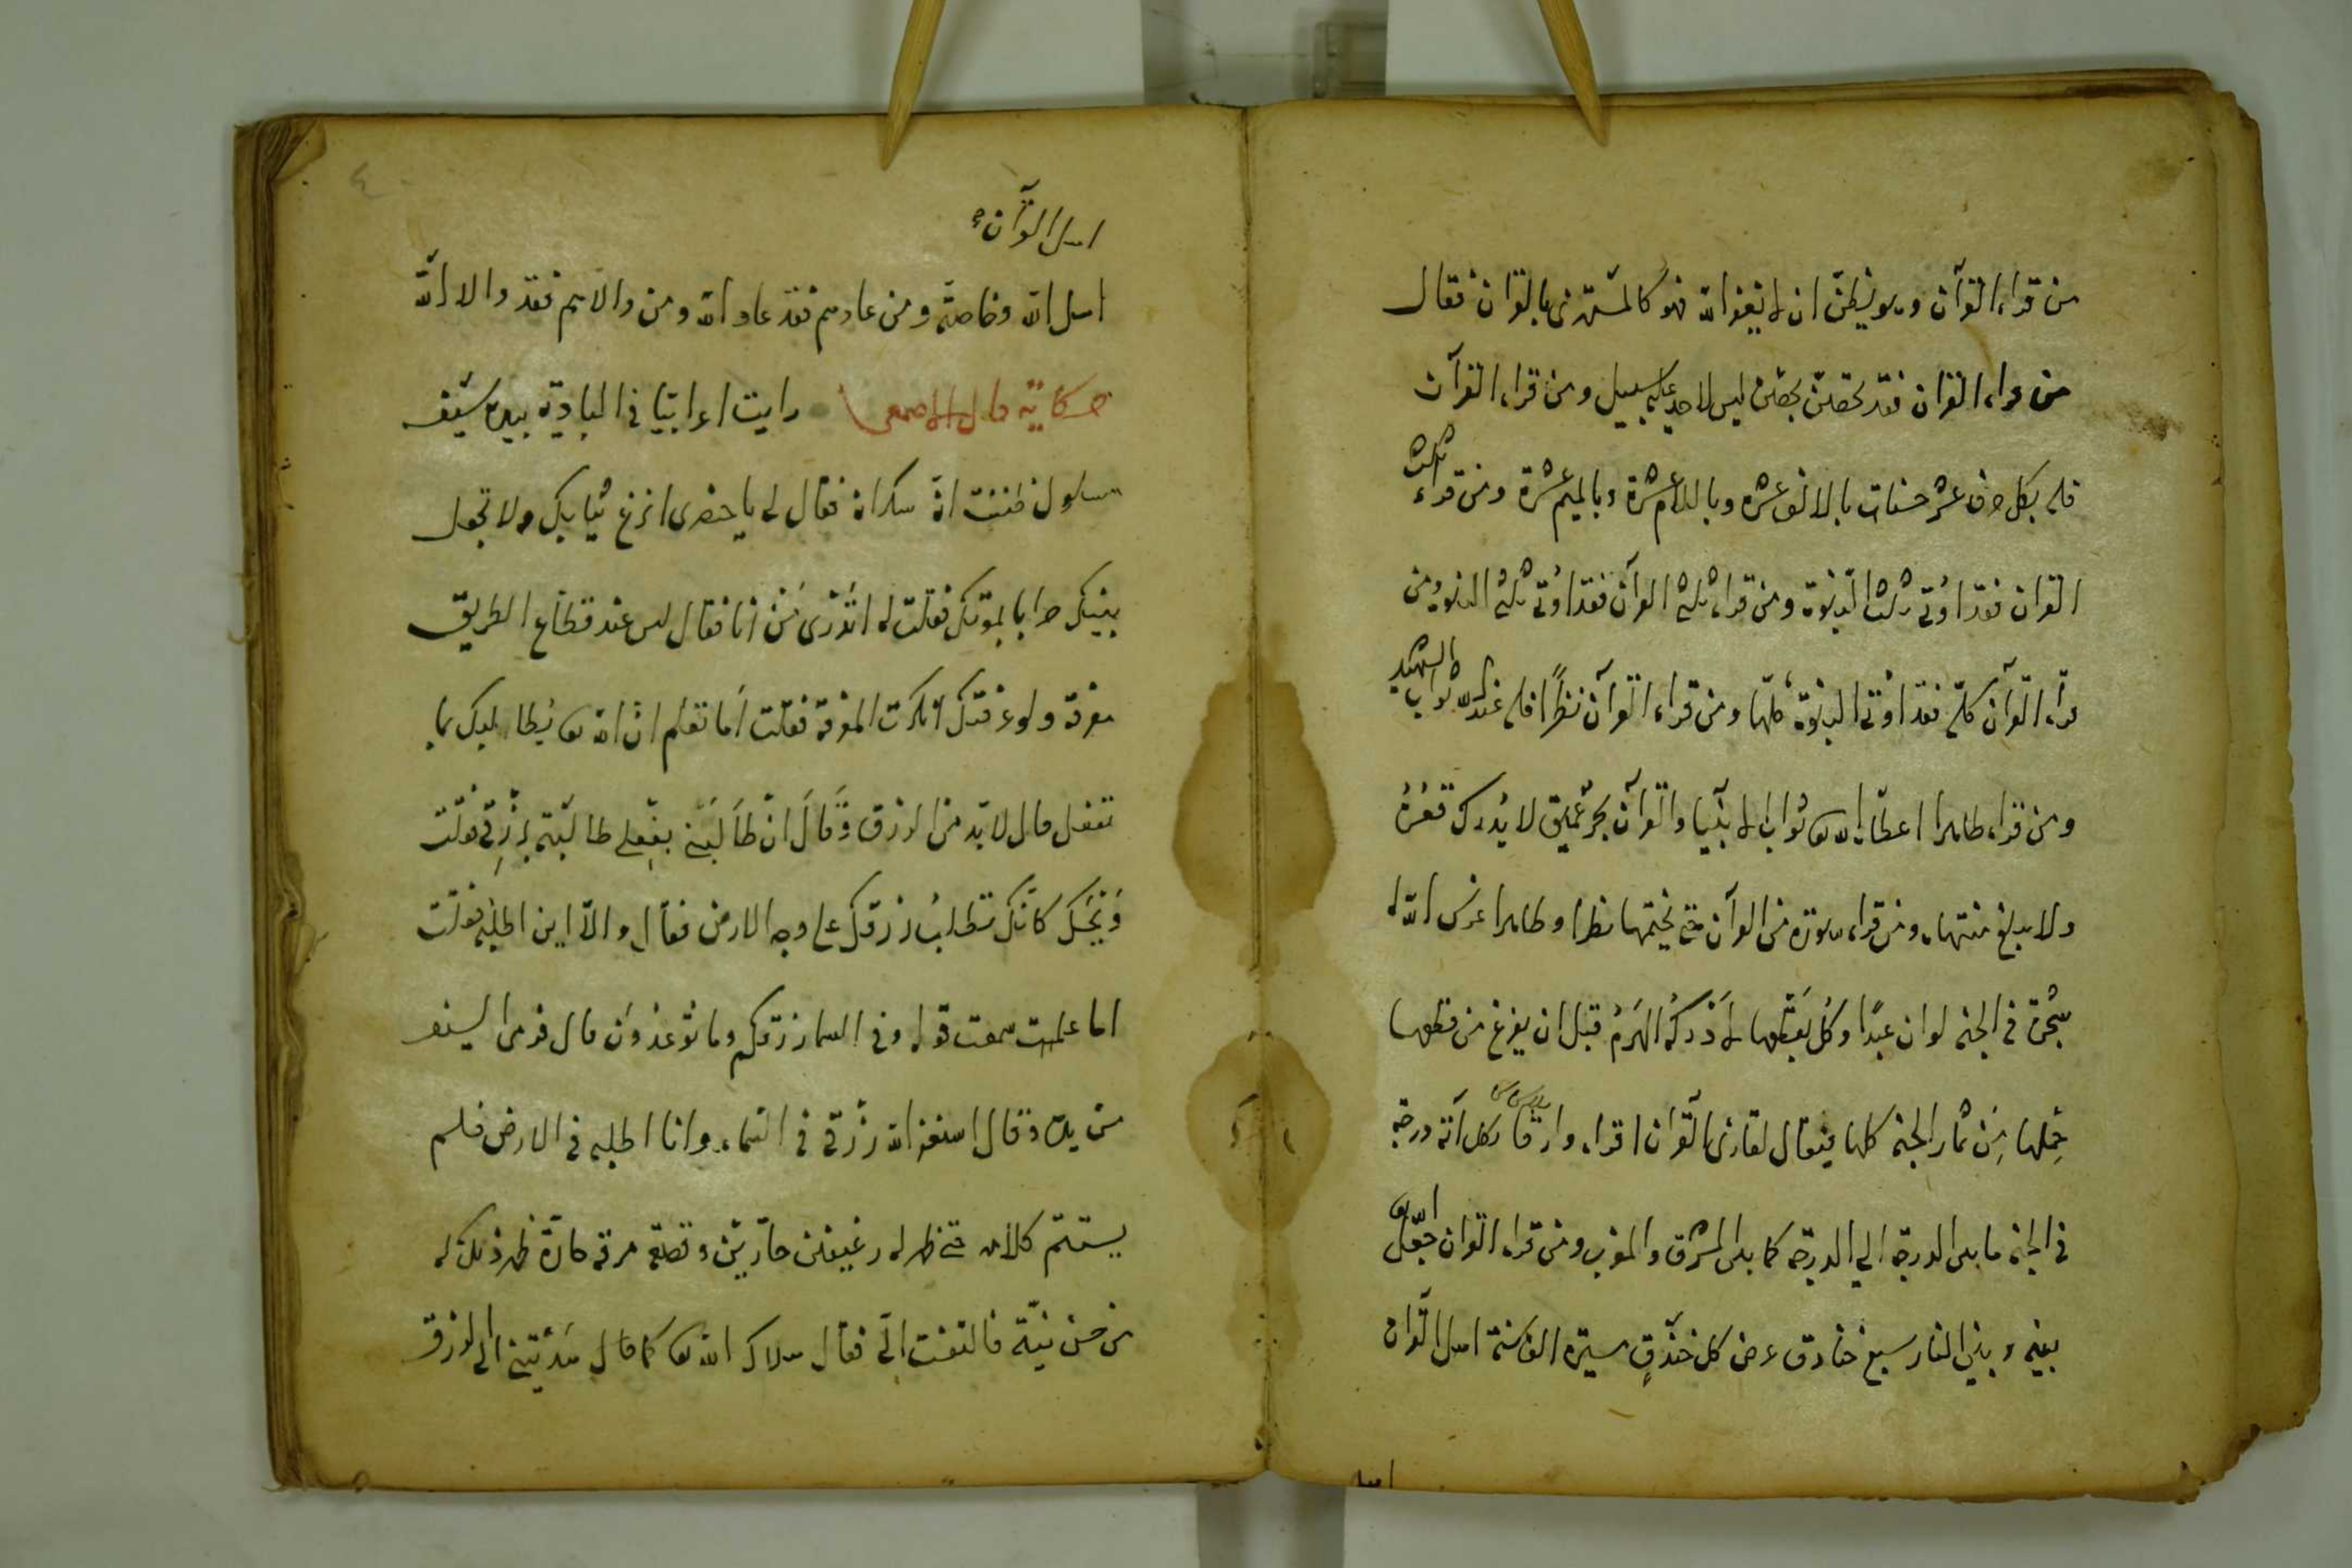 من قراء القرآن وهو يظن ان لا يغفر الله فهو كالمستهزئ بالقران فقال
من قراء القران فقد تحصن بحصن ليس لاحد عليه سبيل ومن قراء القرآن
فله بكل حرف عشر حسنات بالالف عشرة وباللام عشرة وبالميم عشرة ومن قراء ثلث
القران فقد اوتي ثلث النبوة ومن قراء ثلثي القرآن فقد اوتي ثلثي النبوة ومن
قراء القرآن كله فقد اوتي النبوة كلها ومن قراء القرآن نظرًا فله عند الله ثواب الشهيد
ومن قراء طاهرا اعطاه الله تع ثواب الانبيا والقرآن بحر عميق لا يدرك قعره
ولا يبلغ منتهاه ومن قراء سورة من القرآن حتى يختمها نظرا وطاهرا غرس الله له
شجرة في الجنة لو ان عبدًا وكل بقطعها لادركه الهرم قبل ان يفرغ من قطعها
حملها من ثمار الجنة كلها فيقال لقارئ القرآن اقراء وارقا بكل آية درجة
في الجنة ما بين الدرجة الي الدرجة كما بين المشرق والمغرب ومن قراء القران جعل الله تع
بينه وبين النار سبع خنادق عرض كل خندق مسيرة الف سنة اهل القران
اهل
اهل القرآن
اهل الله وخاصته ومن عادهم فقد عاد الله ومن والاهم فقد والا الله
حكاية قال الاصمعي رايت اعرابيا في البادية بيده سيف
مسلول فظننت انه سكران فقال لي يا حضرى انزع ثيابك ولا تجعل
بينك حرابا بموتك فقلت له اتدري من انا فقال ليس عند قطاع الطريق
معرفة ولو عرفتك انكرت المعرفة فقلت اما تعلم ان الله تع يطالبك بما
تفعل قال لا بد من الرزق وقال ان طالبني بفعلي طالبته برزقي فقلت
ويحك كانك تطلب رزقك على وجه الارض فقال والا اين اطلبه فقلت
اما علمت سمعت قوله وفي السما رزقكم وما توعدون قال فرمى السيف
من يده وقال استغفر الله رزقي في السماء وانا اطلبه في الارض فلم
يستتم كلامه حتى ظهر له رغيفين حارين وقصعة مرقة حارة ظهر ذلك له
من حسن نيته فالتفت الي فقال هداك الله تع كما قال هديتني الى الرزق